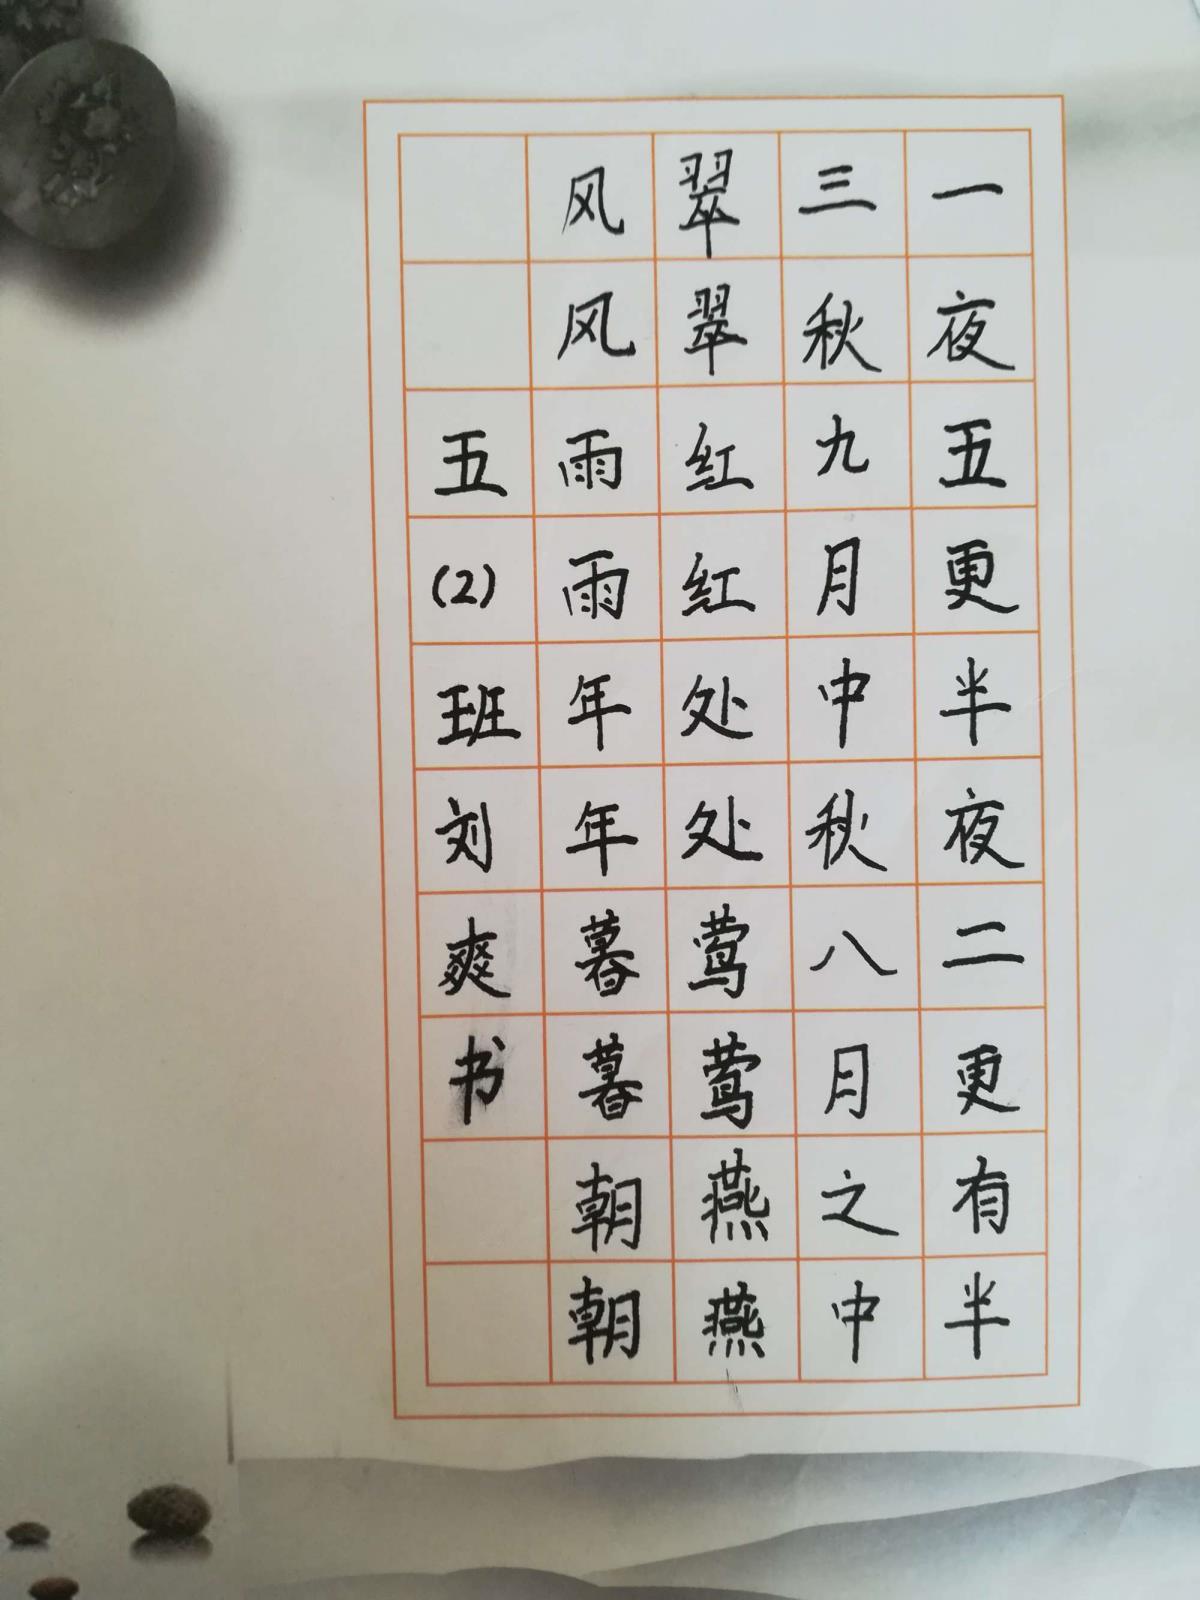 一夜五更半夜二更有半
三秋九月中秋八月之中
翠翠红红处处莺莺燕燕
风风雨雨年年暮暮朝朝
五(2)班刘爽书